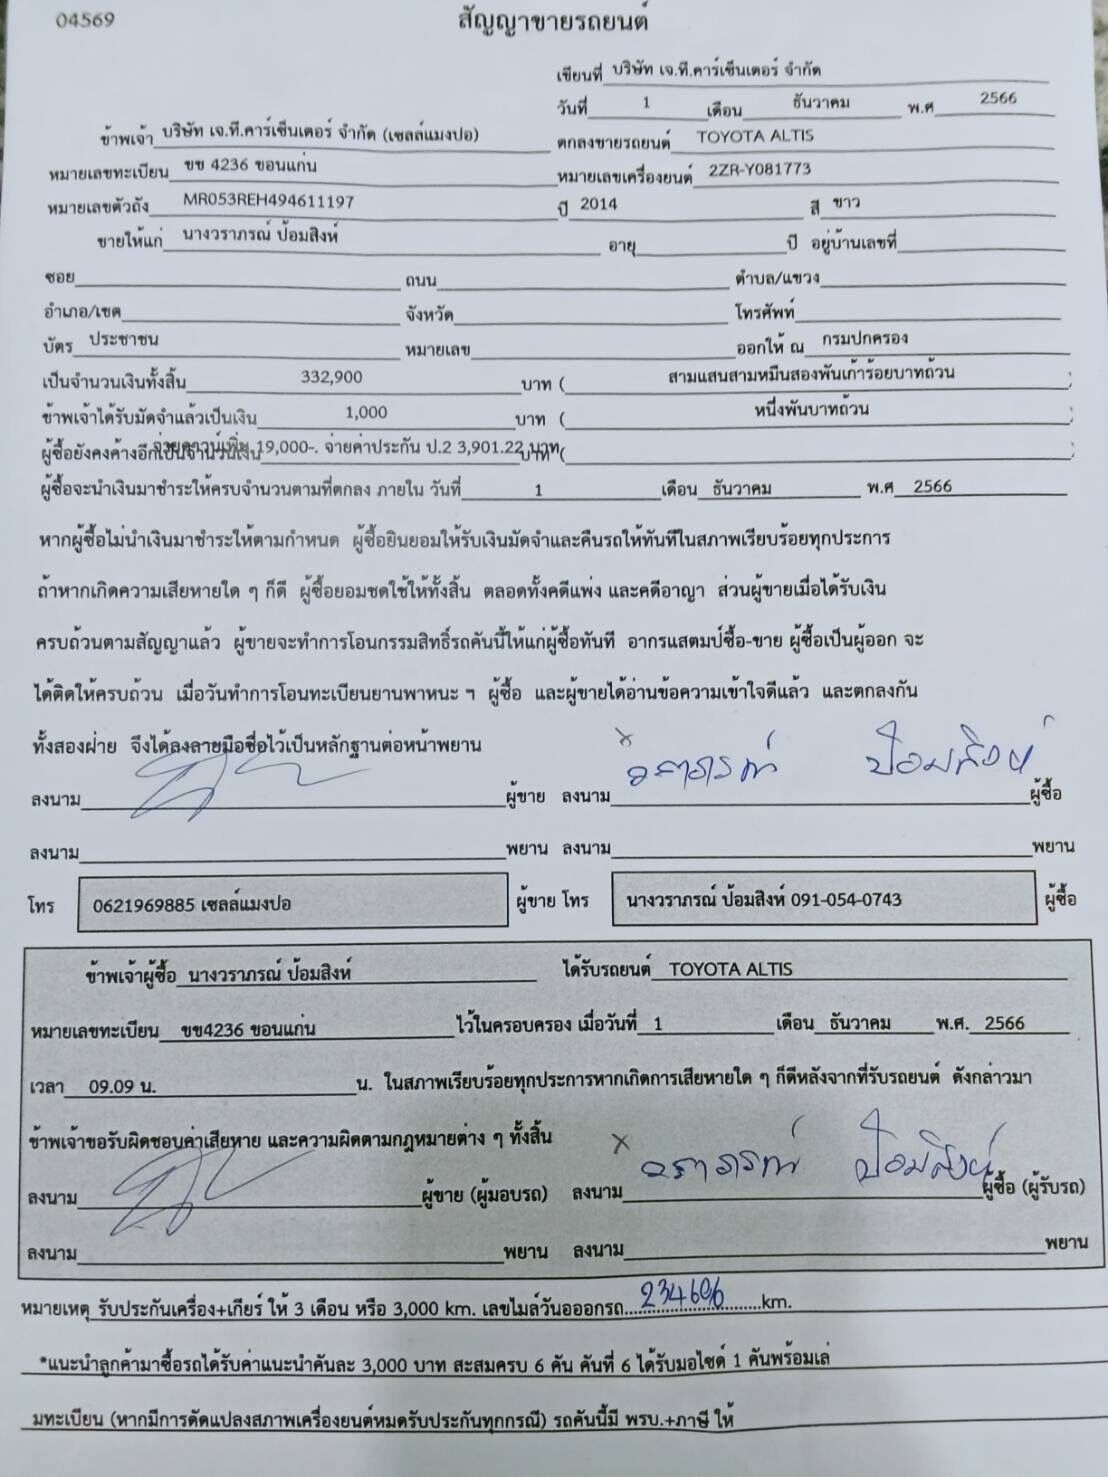 04569
สัญญาขายรถยนต์
เขียนที่ บริษัท เจ.ที.คาร์เซ็นเตอร์ จำกัด
วันที่ 1 เดือน ธันวาคม พ.ศ 2566
ข้าพเจ้า บริษัท เจ.ที.คาร์เซ็นเตอร์ จำกัด (เซลล์แมงปอ) ตกลงขายรถยนต์ TOYOTA ALTIS
หมายเลขทะเบียน ขข 4236 ขอนแก่น หมายเลขเครื่องยนต์ 2ZR-Y081773
หมายเลขตัวถัง MR053REH494611197 ปี 2014 สี ขาว
ขายให้แก่ นางวราภรณ์ ป้อมสิงห์ อายุ ปี อยู่บ้านเลขที่
ซอย ถนน ตำบล/แขวง
อำเภอ/เขต จังหวัด โทรศัพท์
บัตร ประชาชน หมายเลข ออกให้ ณ กรมปกครอง
เป็นจำนวนเงินทั้งสิ้น 332,900 บาท ( สามแสนสามหมื่นสองพันเก้าร้อยบาทถ้วน )
ข้าพเจ้าได้รับมัดจำแล้วเป็นเงิน 1,000 บาท ( หนึ่งพันบาทถ้วน )
ผู้ซื้อยังคงค้างอีกเป็นจำนวนเงิน จ่ายดาวน์เพิ่ม 19,000-. จ่ายค่าประกัน ป.2 3,901.22 บาท บาท ( )
ผู้ซื้อจะนำเงินมาชำระให้ครบจำนวนตามที่ตกลง ภายใน วันที่ 1 เดือน ธันวาคม พ.ศ 2566
หากผู้ซื้อไม่นำเงินมาชำระให้ตามกำหนด ผู้ซื้อยินยอมให้รับเงินมัดจำและคืนรถให้ทันทีในสภาพเรียบร้อยทุกประการ
ถ้าหากเกิดความเสียหายใด ๆ ก็ดี ผู้ซื้อยอมชดใช้ให้ทั้งสิ้น ตลอดทั้งคดีแพ่ง และคดีอาญา ส่วนผู้ขายเมื่อได้รับเงิน
ครบถ้วนตามสัญญาแล้ว ผู้ขายจะทำการโอนกรรมสิทธิ์รถคันนี้ให้แก่ผู้ซื้อทันที อากรแสตมป์ซื้อ-ขาย ผู้ซื้อเป็นผู้ออก จะ
ได้ติดให้ครบถ้วน เมื่อวันทำการโอนทะเบียนยานพาหนะ ฯ ผู้ซื้อ และผู้ขายได้อ่านข้อความเข้าใจดีแล้ว และตกลงกัน
ทั้งสองฝ่าย จึงได้ลงลายมือชื่อไว้เป็นหลักฐานต่อหน้าพยาน
ลงนาม ผู้ขาย ลงนาม x วราภรณ์ ป้อมสิงห์ ผู้ซื้อ
ลงนาม พยาน ลงนาม พยาน
โทร 0621969885 เซลล์แมงปอ ผู้ขาย โทร นางวราภรณ์ ป้อมสิงห์ 091-054-0743 ผู้ซื้อ
ข้าพเจ้าผู้ซื้อ นางวราภรณ์ ป้อมสิงห์ ได้รับรถยนต์ TOYOTA ALTIS
หมายเลขทะเบียน ขข4236 ขอนแก่น ไว้ในครอบครอง เมื่อวันที่ 1 เดือน ธันวาคม พ.ศ. 2566
เวลา 09.09 น. น. ในสภาพเรียบร้อยทุกประการหากเกิดการเสียหายใด ๆ ก็ดีหลังจากที่รับรถยนต์ ดังกล่าวมา
ข้าพเจ้าขอรับผิดชอบค่าเสียหาย และความผิดตามกฎหมายต่าง ๆ ทั้งสิ้น
ลงนาม ผู้ขาย (ผู้มอบรถ) ลงนาม x วราภรณ์ ป้อมสิงห์ ผู้ซื้อ (ผู้รับรถ)
ลงนาม พยาน ลงนาม พยาน
หมายเหตุ รับประกันเครื่อง+เกียร์ ให้ 3 เดือน หรือ 3,000 km. เลขไมล์วันอออกรถ 234696 km.
*แนะนำลูกค้ามาซื้อรถได้รับค่าแนะนำคันละ 3,000 บาท สะสมครบ 6 คัน คันที่ 6 ได้รับมอไซด์ 1 คันพร้อมเล่
มทะเบียน (หากมีการดัดแปลงสภาพเครื่องยนต์หมดรับประกันทุกกรณี) รถคันนี้มี พรบ.+ภาษี ให้